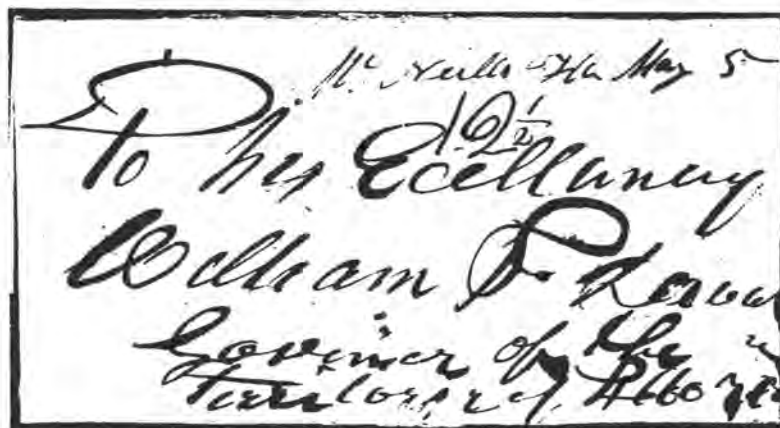 Mc Neills Fla May 5
12½
To his Ecellancy
William P. Duval
Governer of the
Territory of